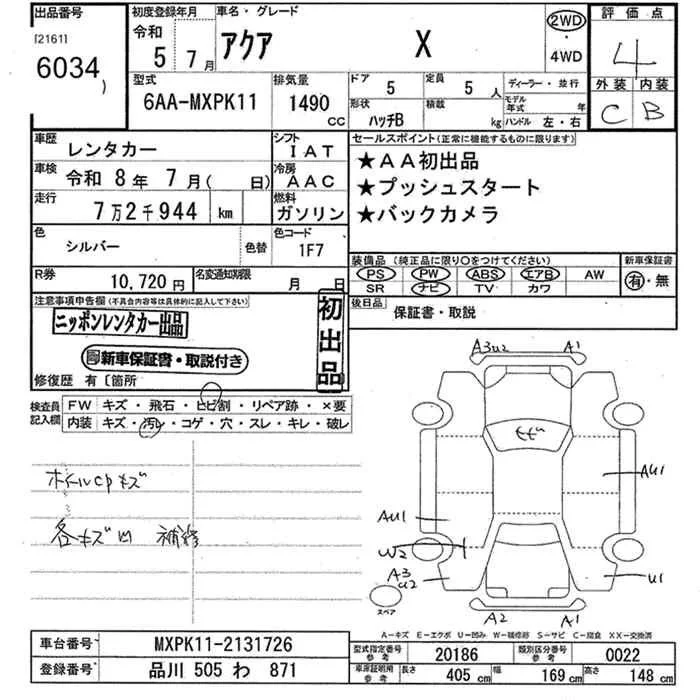 出品番号
[2161]
6034
)
初度登録年月
令和
5 年 7 月
車名・グレード
アクア X
2WD
・
4WD
評価点
4
外装 内装
C B
型式
6AA-MXPK11
排気量
1490
CC
ドア 5
定員 5 人
ディーラー・並行
形状
ハッチB
積載 kg
モデル年式 年
ハンドル 左・右
車歴 レンタカー
シフト IAT
車検 令和 8 年 7 月( 日)
冷房 AAC
走行 7万2千944 km
燃料 ガソリン
色 シルバー 色替
色コード 1F7
R券 10,720 円
名変通知期限 月 日
セールスポイント(正常に機能するものに限ります)
★AA初出品
★プッシュスタート
★バックカメラ
装備品 (純正品に限り○をつけてください)
新車保証書
PS PW ABS エアB AW
SR ナビ TV カワ
有・無
後日品
保証書・取説
注意事項申告欄(不具合内容等は具体的に記入して下さい)
ニッポンレンタカー出品
新車保証書・取説付き
初出品
修復歴 有〔箇所
検査員
記入欄
FW キズ・飛石・ヒビ割・リペア跡・×要
内装 キズ・汚レ・コゲ・穴・スレ・キレ・破レ
ホイルCPキズ
各キズ凹 補修
A3
U2
A1
ヒビ
AU1
AU1
W2
A3
U2
U1
スペア
A2
A1
A-キズ E-エクボ U-凹み W-補修跡 S-サビ C-腐食 XX-交換済
車台番号 MXPK11-2131726
登録番号 品川 505 わ 871
型式指定番号
参考
20186
類別区分番号
参考
0022
車庫証明用
参考
長さ 405 cm
幅 169 cm
高さ 148 cm